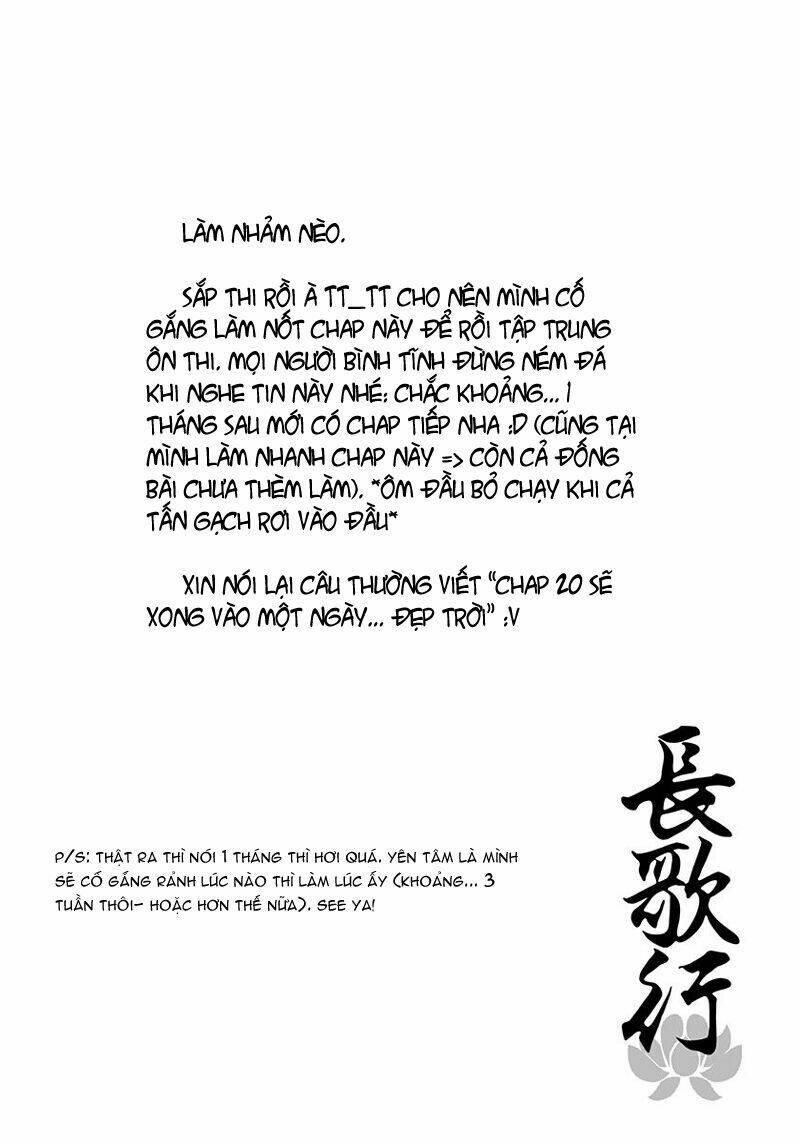 LÀM NHẢM NÈO.
SẮP THI RỒI À TT_TT CHO NÊN MÌNH CỐ
GẮNG LÀM NỐT CHAP NÀY ĐỂ RỒI TẬP TRUNG
ÔN THI. MỌI NGƯỜI BÌNH TĨNH ĐỪNG NÉM ĐÁ
KHI NGHE TIN NÀY NHÉ: CHẮC KHOẢNG... 1
THÁNG SAU MỚI CÓ CHAP TIẾP NHA :D (CŨNG TẠI
MÌNH LÀM NHANH CHAP NÀY => CÒN CẢ ĐỐNG
BÀI CHƯA THÈM LÀM). *ÔM ĐẦU BỎ CHẠY KHI CẢ
TẤN GẠCH RƠI VÀO ĐẦU*
XIN NÓI LẠI CÂU THƯỜNG VIẾT "CHAP 20 SẼ
XONG VÀO MỘT NGÀY... ĐẸP TRỜI" :V
P/S: THẬT RA THÌ NÓI 1 THÁNG THÌ HƠI QUÁ. YÊN TÂM LÀ MÌNH
SẼ CỐ GẮNG RẢNH LÚC NÀO THÌ LÀM LÚC ẤY (KHOẢNG... 3
TUẦN THÔI- HOẶC HƠN THẾ NỮA). SEE YA!
長歌行